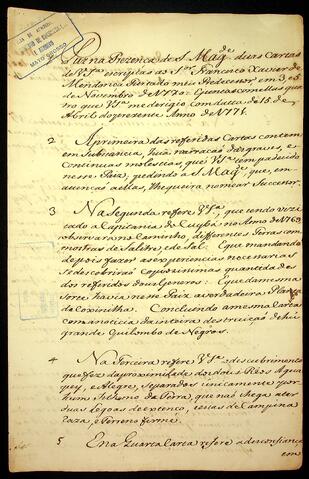 Puz na Prezença de S. Mag.e duas Cartas
de V. S.a escriptas ao S.or Francisco Xavier de
Mendonça Furtado meu Predecessor em 3, e 5
de Novembro de 1770: E que
tro que V. S.a me derigio com data de 15 de
Abril do prezente Anno de 1771.
2 A primeira das referidas Cartas contem
em Substancia, hua narração das graves, e
continuas molestias, que V. S.a tem padecido
nesse Paiz, pedindo a S. Mag.e, que, em
attenção a ellas, lhe queira nomear Successor.
3 Na Segunda refere V. S.a, que tendo vezi
tado a Capitania do Cuyabá no Anno de 1769
observara no Caminho differentes Terras com
mostras de Salitre, e de Sal: E que mandando
depois fazer as experiencias necessarias
se descobrirão copiosissimas quantidades
dos referidos dous Generos: E que da mesma
sorte havia nesse Paiz a verdadeira Planta
da Coxinilha. Concluindo a mesma Carta
com a noticia da inteira destruição de hú
grande Quilombo de Negros.
4 Na Terceira refere V. S.a o descubrimento
que fez da proximidade dos dous Rios Agua
pey, e Alegre, separados unicamente por
hum Isthmo de Terra, que não chega a ter
duas legoas de extenção, e essas de Campina
raza, e Terreno firme.
5 E na Quarta Carta refere a desconfiança
em